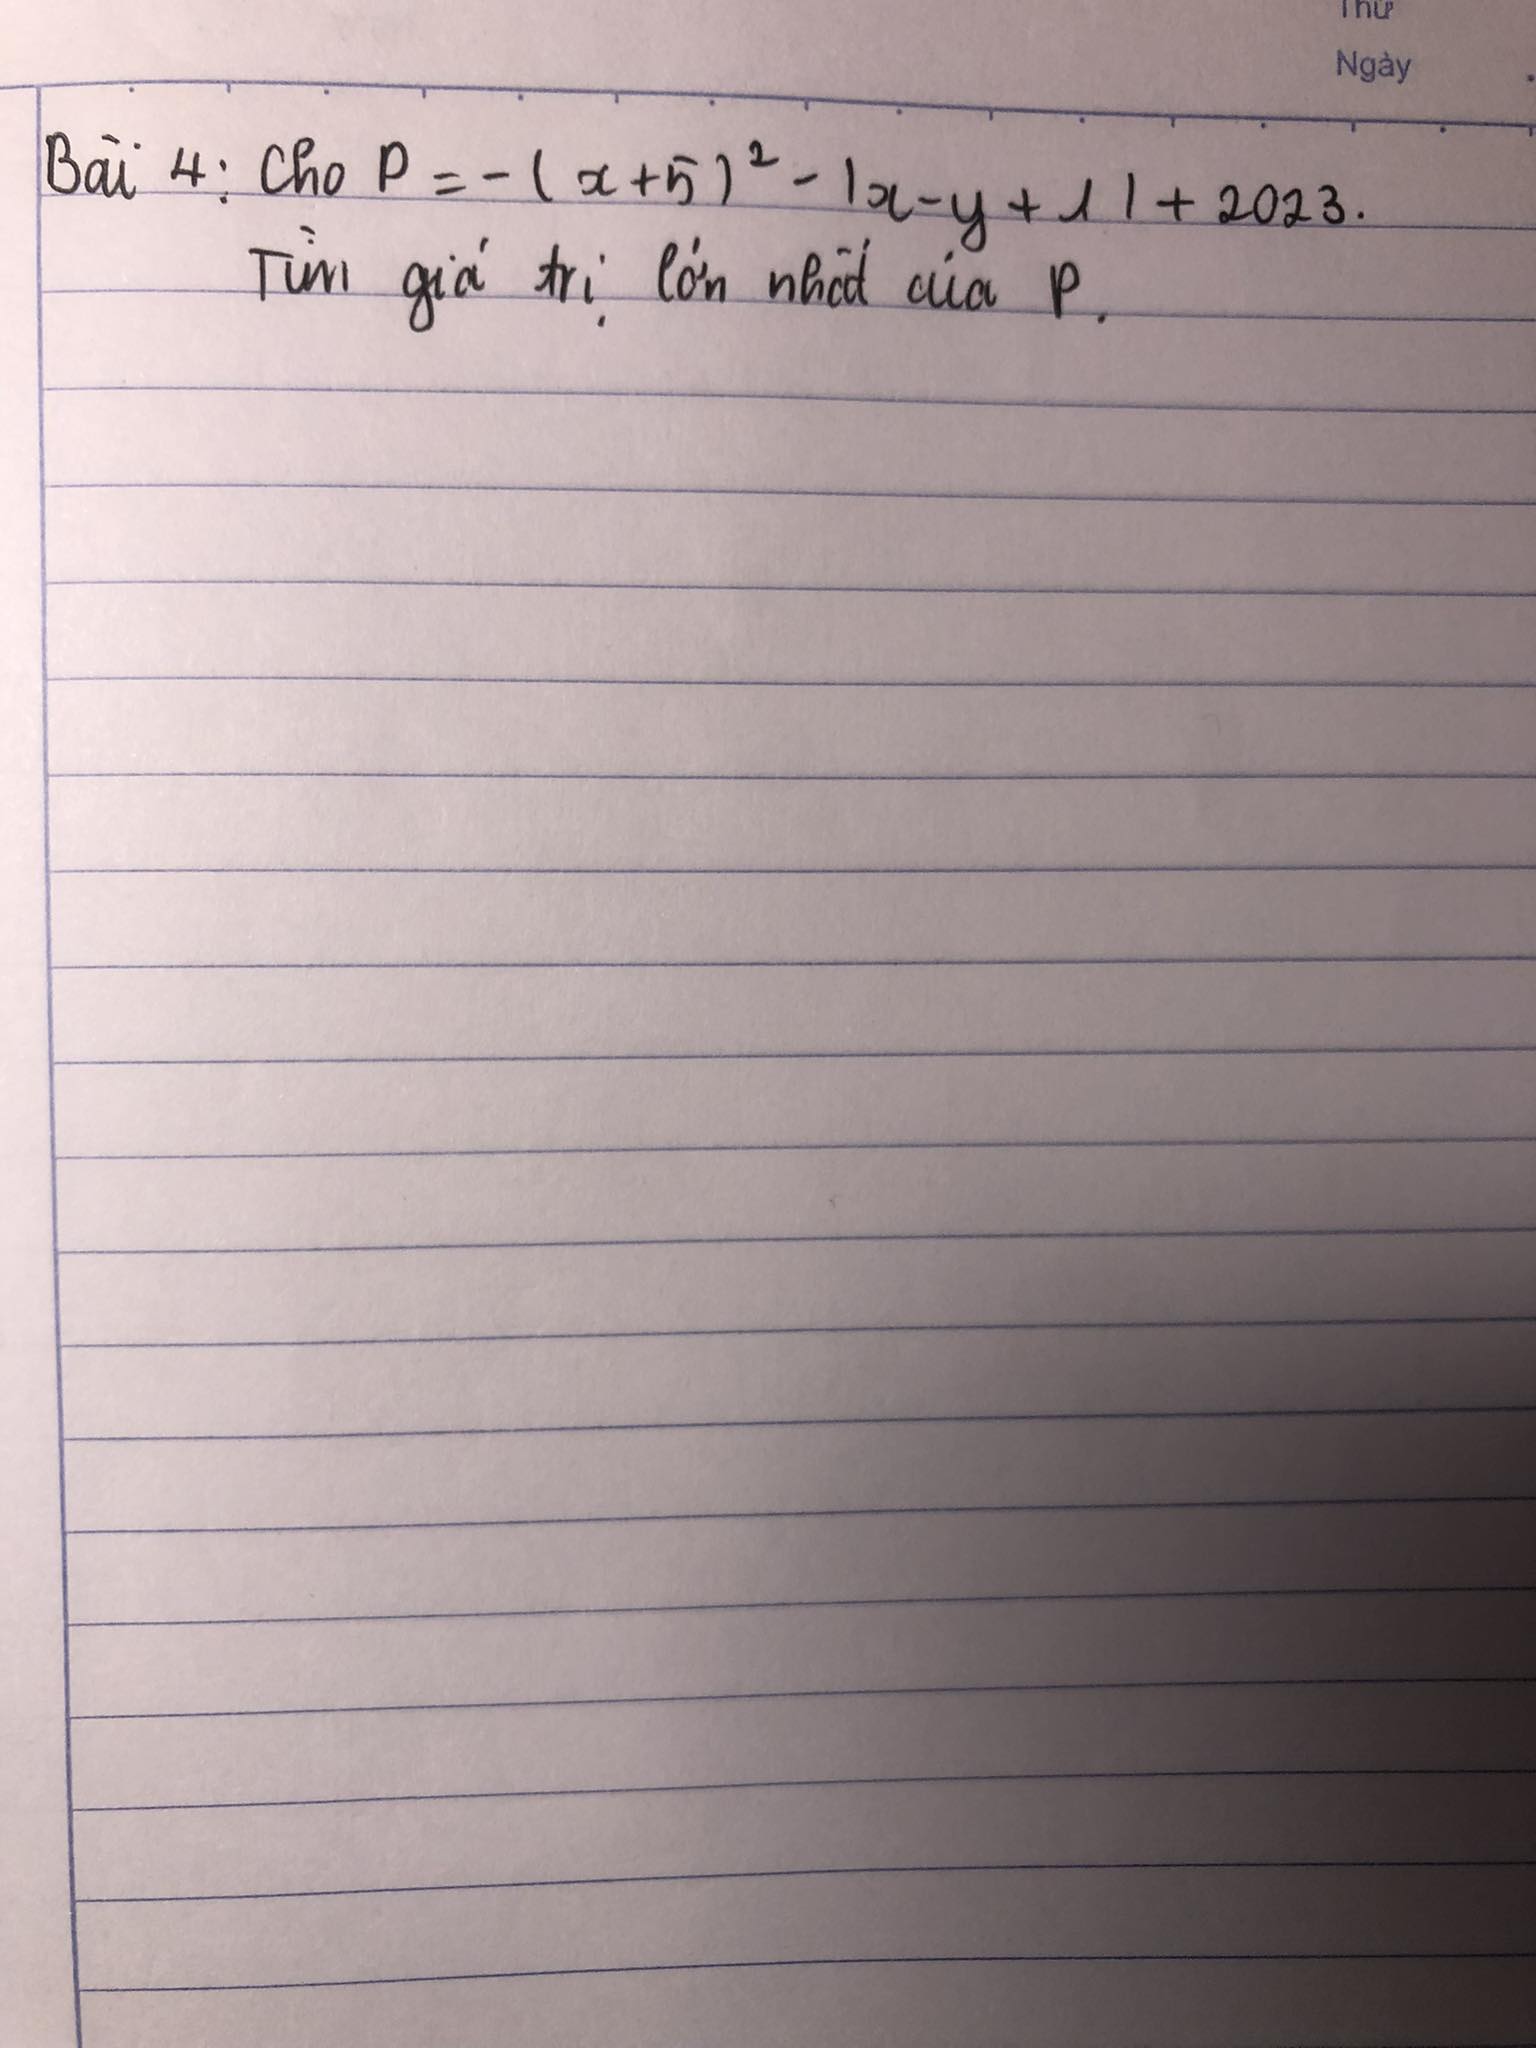 Thứ
Ngày
Bài 4: Cho P = -(x+5)² - |x-y+1| + 2023.
Tìm giá trị lớn nhất của P.